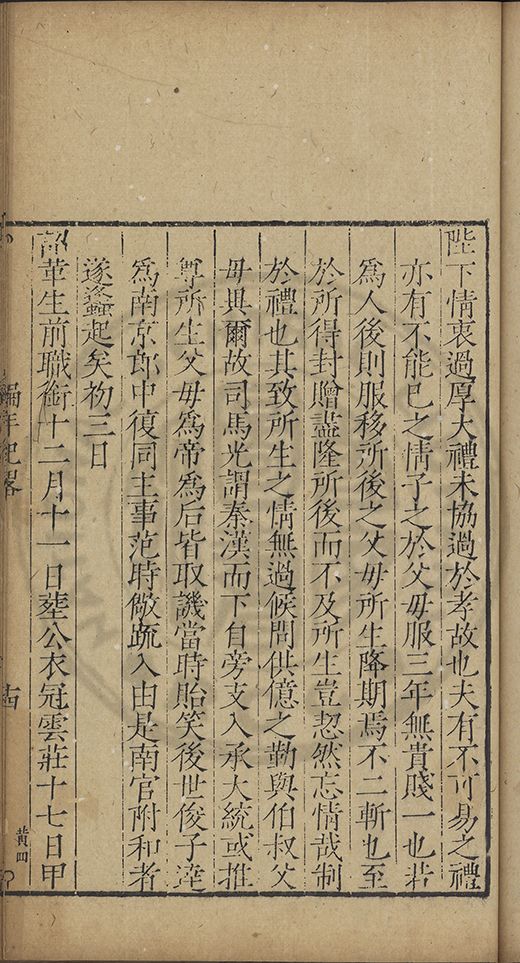 陛下情衷過厚大禮未協過於孝故也夫有不可易之禮
亦有不能已之情子之於父母服三年無貴賤一也若
為人後則服移所後之父母所生降期焉不二斬也至
於所得封贈盡隆所後而不及所生豈恝然忘情哉制
於禮也其致所生之情無過候問供億之勤與伯叔父
母與爾故司馬光謂秦漢而下自旁支入承大統或推
尊所生父母為帝為后皆取譏當時貽笑後世俊子逵
為南京郎中復同主事范時儆疏入由是南官附和者
遂逩起矣初三日
韶華生前職銜十二月十一日塟公衣冠雲莊十七日甲
編年紀畧
十四
黄四